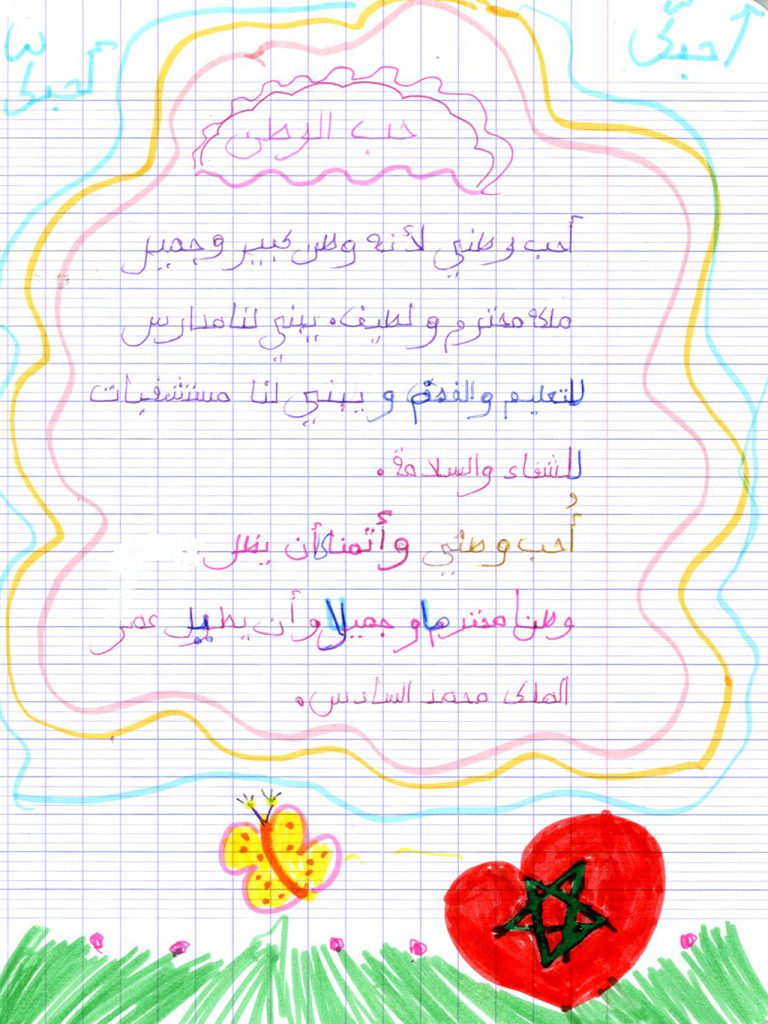 أحبكَ
أحبكَ
حب الوطن
أحب وطني لأنه وطن كبير وجميل
ملكه محترم ولطيف. يبني لنا مدارس
للتعليم والفهم و يبني لنا مستشفيات
للشفاء والسلامة.
أُحب وطني وأتمنا أن يظل
وطنا محترما و جميلا وأن يطيل عمر
الملك محمد السادس.